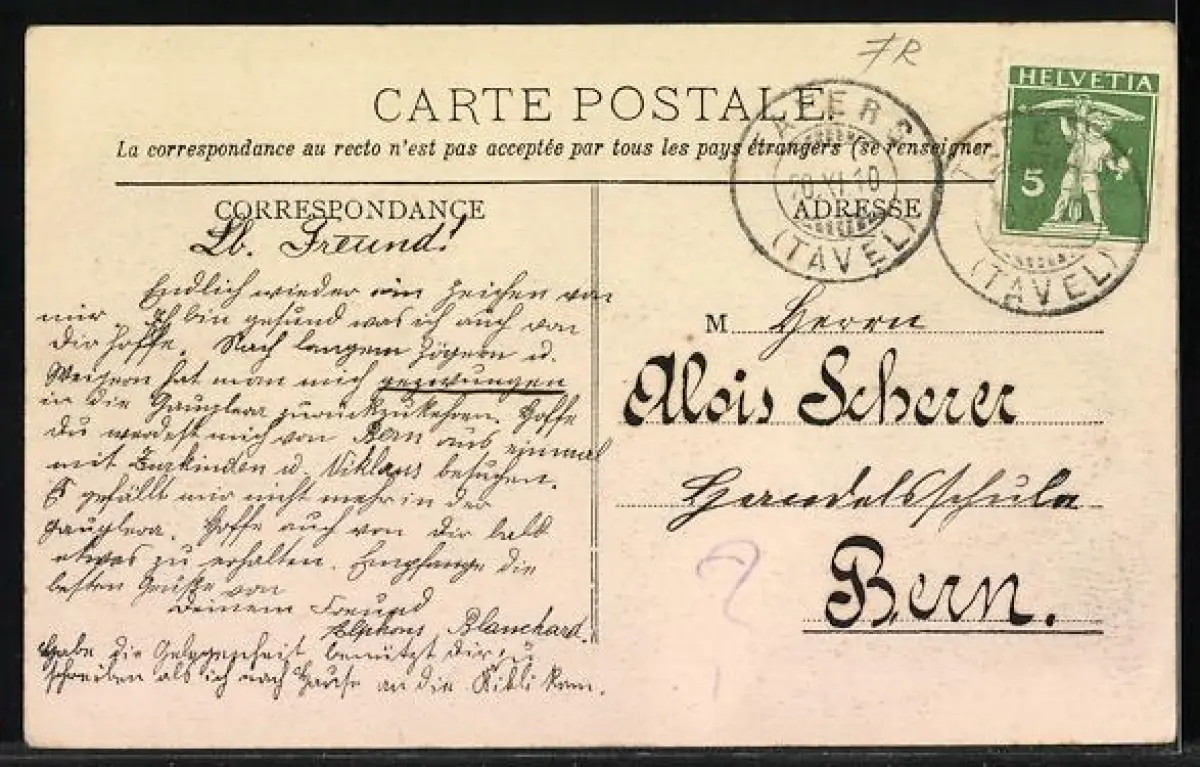 7R
CARTE POSTALE.
La correspondance au recto n'est pas acceptée par tous les pays étrangers (se renseigner
HELVETIA
5
TAFERS
20.XI.10
(TAVEL)
(TAVEL)
CORRESPONDANCE
Lb. Freund!
Endlich wieder ein Zeichen von
mir. Ich bin gesund was ich auch von
Dir hoffe. Nach langem Zögern u.
hat man mich gezwungen
in die zurückzukehren. Hoffe
Du werdest mich von Bern aus einmal
mit Zurkinden u. Niklaus besuchen.
Es gefällt mir nicht mehr in der
Hoffe auch von Dir bald
etwas zu erhalten. Empfange die
besten Grüße von
Deinem Freund
Alphons Blanchard.
Habe die Gelegenheit benützt Dir zu
schreiben als ich nach Hause an die Kilbi kam.
ADRESSE
M Herrn
Alois Scherer
Handelsschule
Bern.